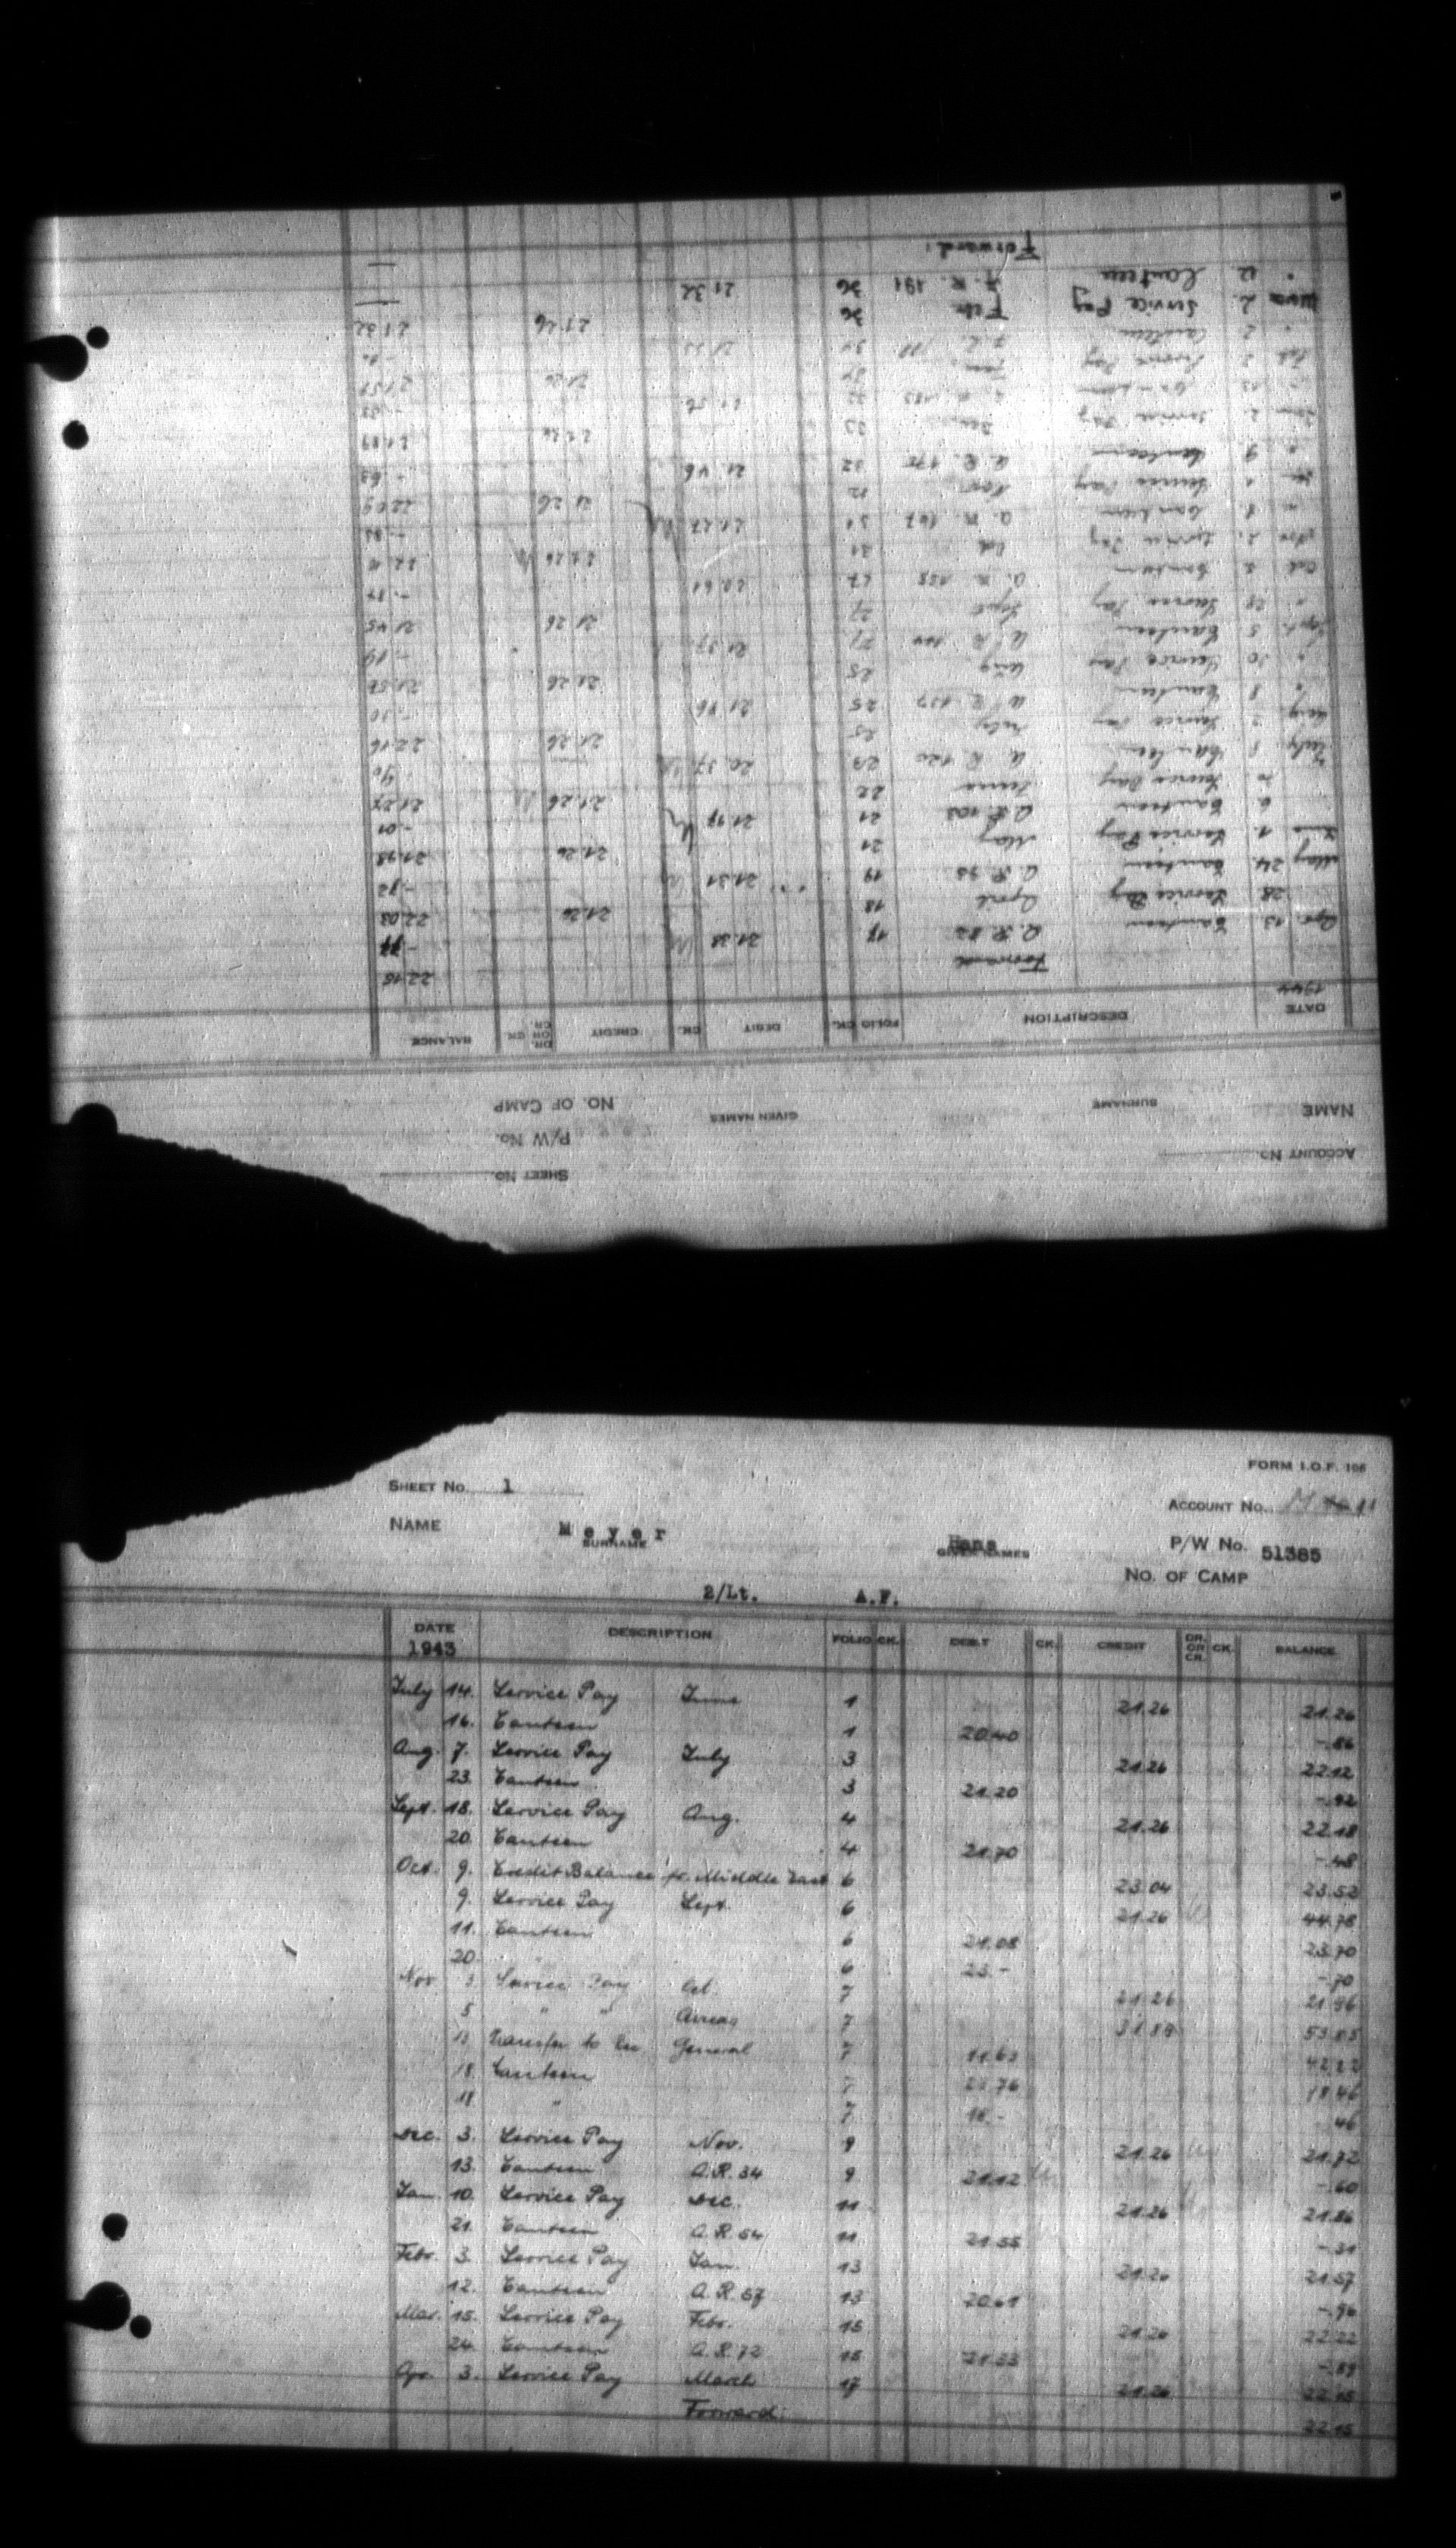 FORM I.O.F. 106
SHEET No. 1
ACCOUNT No. M 11
NAME Meyer Hans
SURNAME GIVEN NAMES
P/W No. 51385
No. OF CAMP
2/Lt. A.F.
DATE DESCRIPTION FOLIO CK. DEBIT CK. CREDIT DR. OR CR. CK. BALANCE
1943
July 14. Service Pay June 1 21.26 21.26
16. Canteen 1 20.40 -.86
Aug. 7. Service Pay July 3 21.26 22.12
23. Canteen 3 21.20 -.92
Sept. 18. Service Pay Aug. 4 21.26 22.18
20. Canteen 4 21.70 -.48
Oct. 9. Credit Balance fr. Middle East 6 23.04 23.52
9. Service Pay Sept. 6 21.26 44.78
11. Canteen 6 21.08 23.70
20. " 6 23.- -.70
Nov. Service Pay Oct. 7 21.26 21.96
5 " " Arrears 7 31.89 53.85
Transfer to General 7 11.63 42.22
18. Canteen 7 23.76 18.46
18 " 7 18.- 46
Dec. 3. Service Pay Nov. 9 21.26 21.72
13. Canteen A.R. 34 9 21.12 -.60
Jan. 10. Service Pay Dec. 11 21.26 21.86
21. Canteen A.R. 54 11 21.55 -.31
Febr. 3. Service Pay Jan. 13 21.26 21.57
12. Canteen A.R. 57 13 20.61 -.96
Mar. 15. Service Pay Febr. 15 21.26 22.22
24. Canteen A.R. 72 15 21.33 -.89
Apr. 3. Service Pay March 17 21.26 22.15
Forward: 22.15
SHEET No.
ACCOUNT No.
P/W No.
NAME SURNAME GIVEN NAMES NO. OF CAMP
DATE DESCRIPTION FOLIO CK. DEBIT CK. CREDIT DR. OR CR. CK. BALANCE
1944
Forward 22.15
Apr. 13. Canteen A.R. 82 17 21.38 -.77
28 Service Pay April 18 21.26 22.03
May 24. Canteen A.R. 93 19 21.31 -.72
June 1. Service Pay May 21 21.26 21.98
6 Canteen A.R. 103 21 21.97 -.01
Service Pay June 22 21.26 21.27
July 8 Canteen A.R. 120 23 20.37 90
Aug 2 Service Pay July 25 21.26 22.16
8 Canteen A.R. 137 25 21.86 -.30
30 Service Pay Aug 25 21.26 21.56
Sept. 5 Canteen A.R. 27 21.37 -.19
28 Service Pay Sept 27 21.26 21.45
Oct 2 Canteen A.R. 158 27 20.61
Nov 2. Service Pay Oct 31 21.26
8 Canteen A.R. 167 31 21.27
Service Pay Nov 21.26 22.09
9 Canteen A.R. 175 32 21.46 -.63
2 Service Pay Dec 33 21.26 21.89
Canteen A.R. 183 21.56 -.33
Feb 2 Service Pay Jan 21.26 21.59
2 Canteen
2. Service Pay Febr 36 21.26 21.32
" 12 Canteen A.R. 191 36 21.32 —
Forward: